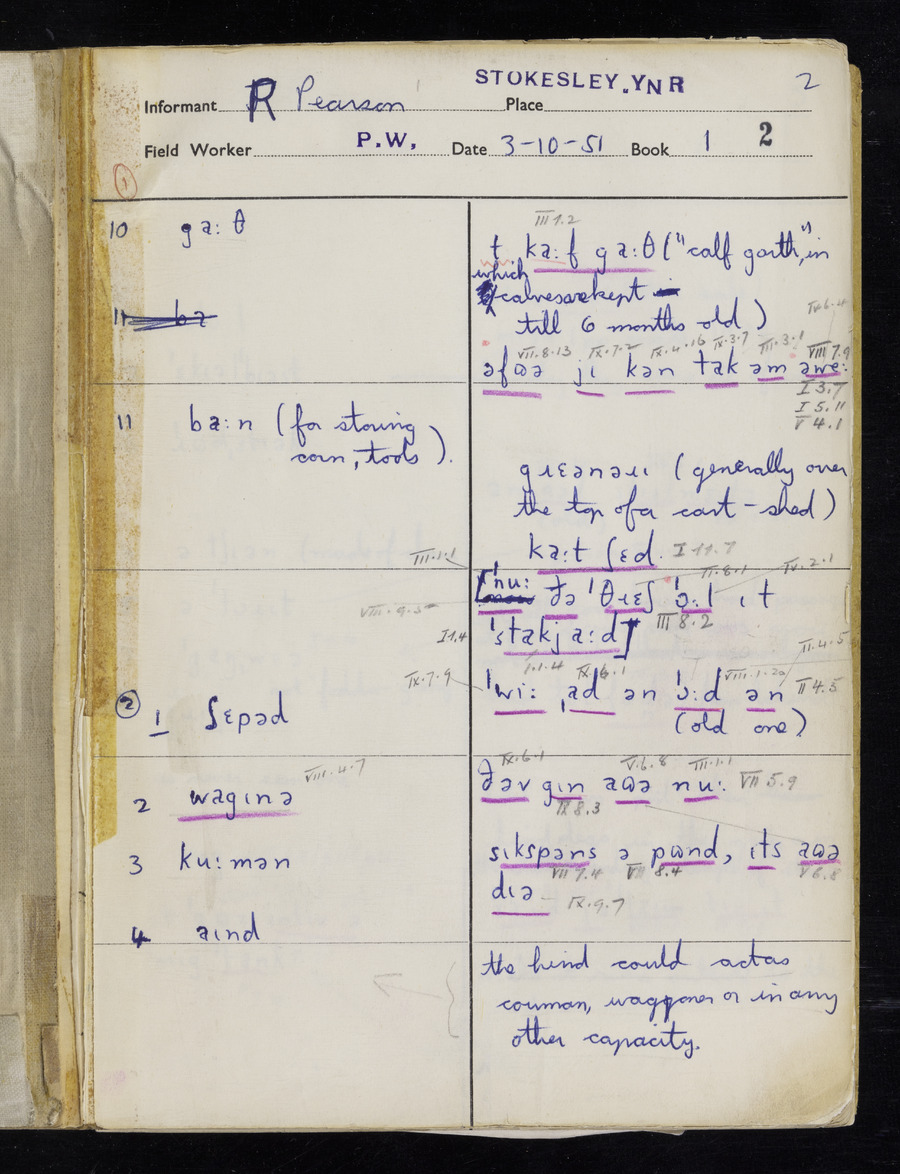 STOKESLEY. Y N R 2
Informant R Pearson Place
Field Worker P.W. Date 3-10-51 Book 1 2
1
III 1.2
10 ga:θ
t ka:f ga:θ ("calf garth", in
which
calves are kept
till 6 months old)
IX 6.4
11 ba
VII.8.13 IX.7.2 IX.4.16 IX.3.7 III.3.1 VIII 7.9
əfɷə jɪ kən tak əm əwe:
I 3.7
I 5.11
V 4.1
11 ba:n (for storing
corn, tools).
gɹɛənəɹɪ (generally over
the top of a cart-shed)
ka:t ʃɛd. I 11.7
III.1.1
II.8.1 IV.2.1
[ˈnu: ðə ˈθɹɛʃ ˈɔ:l ɪt
VIII.9.5 III 8.2
I 1.4 ˈstakja:d]
II.4.5
IX.7.9 I.1.4 IX.6.1 VIII.1.20
ˈwi: ˌad ən ˈɔ:d ən II 4.5
(old one)
2
1 ʃɛpəd
IX.6.1 V.6.8 III.1.1
VIII.4.7
ðəv gɪn aɷə nu:. VII 5.9
IX 8.3
2 wagɪnə
3 ku:mən
sɪkspəns ə pɷnd, ɪts aɷə
VII 7.4 VII 8.4 V 6.8
dɪə IX.9.7
4 aɪnd
the hind could act as
couman, waggoner or in any
other capacity.